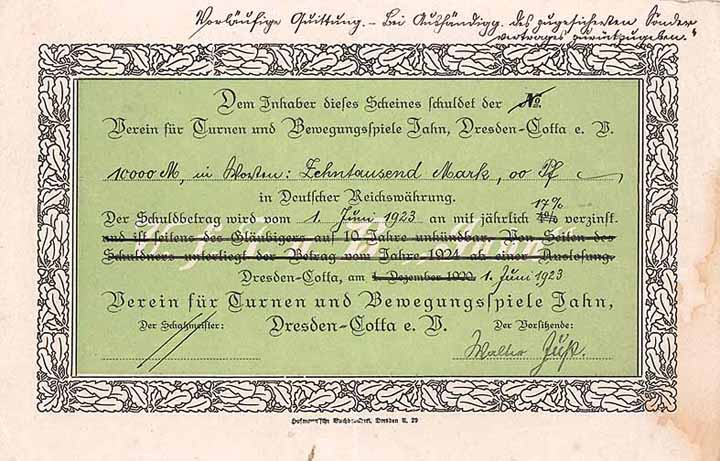 Vorläufige Quittung. – Bei Aushändigg. des zugesicherten Sonder
vertrages zurückzugeben."
Dem Inhaber dieses Scheines schuldet der No.
Verein für Turnen und Bewegungsspiele Jahn, Dresden-Cotta e. V.
10000 M, in Worten: Zehntausend Mark, 00 Pf
in Deutscher Reichswährung.
17%
Der Schuldbetrag wird vom 1. Juni 1923 an mit jährlich verzinst
und ist seitens des Gläubigers auf 10 Jahre unkündbar. Von Seiten des
Schuldners unterliegt der Betrag vom Jahre 1924 ab einer Auslosung.
Dresden-Cotta, am 1. Dezember 1920. 1. Juni 1923
Verein für Turnen und Bewegungsspiele Jahn,
Der Schatzmeister: Dresden-Cotta e. V. Der Vorsitzende:
Walter
Dresden A. 29